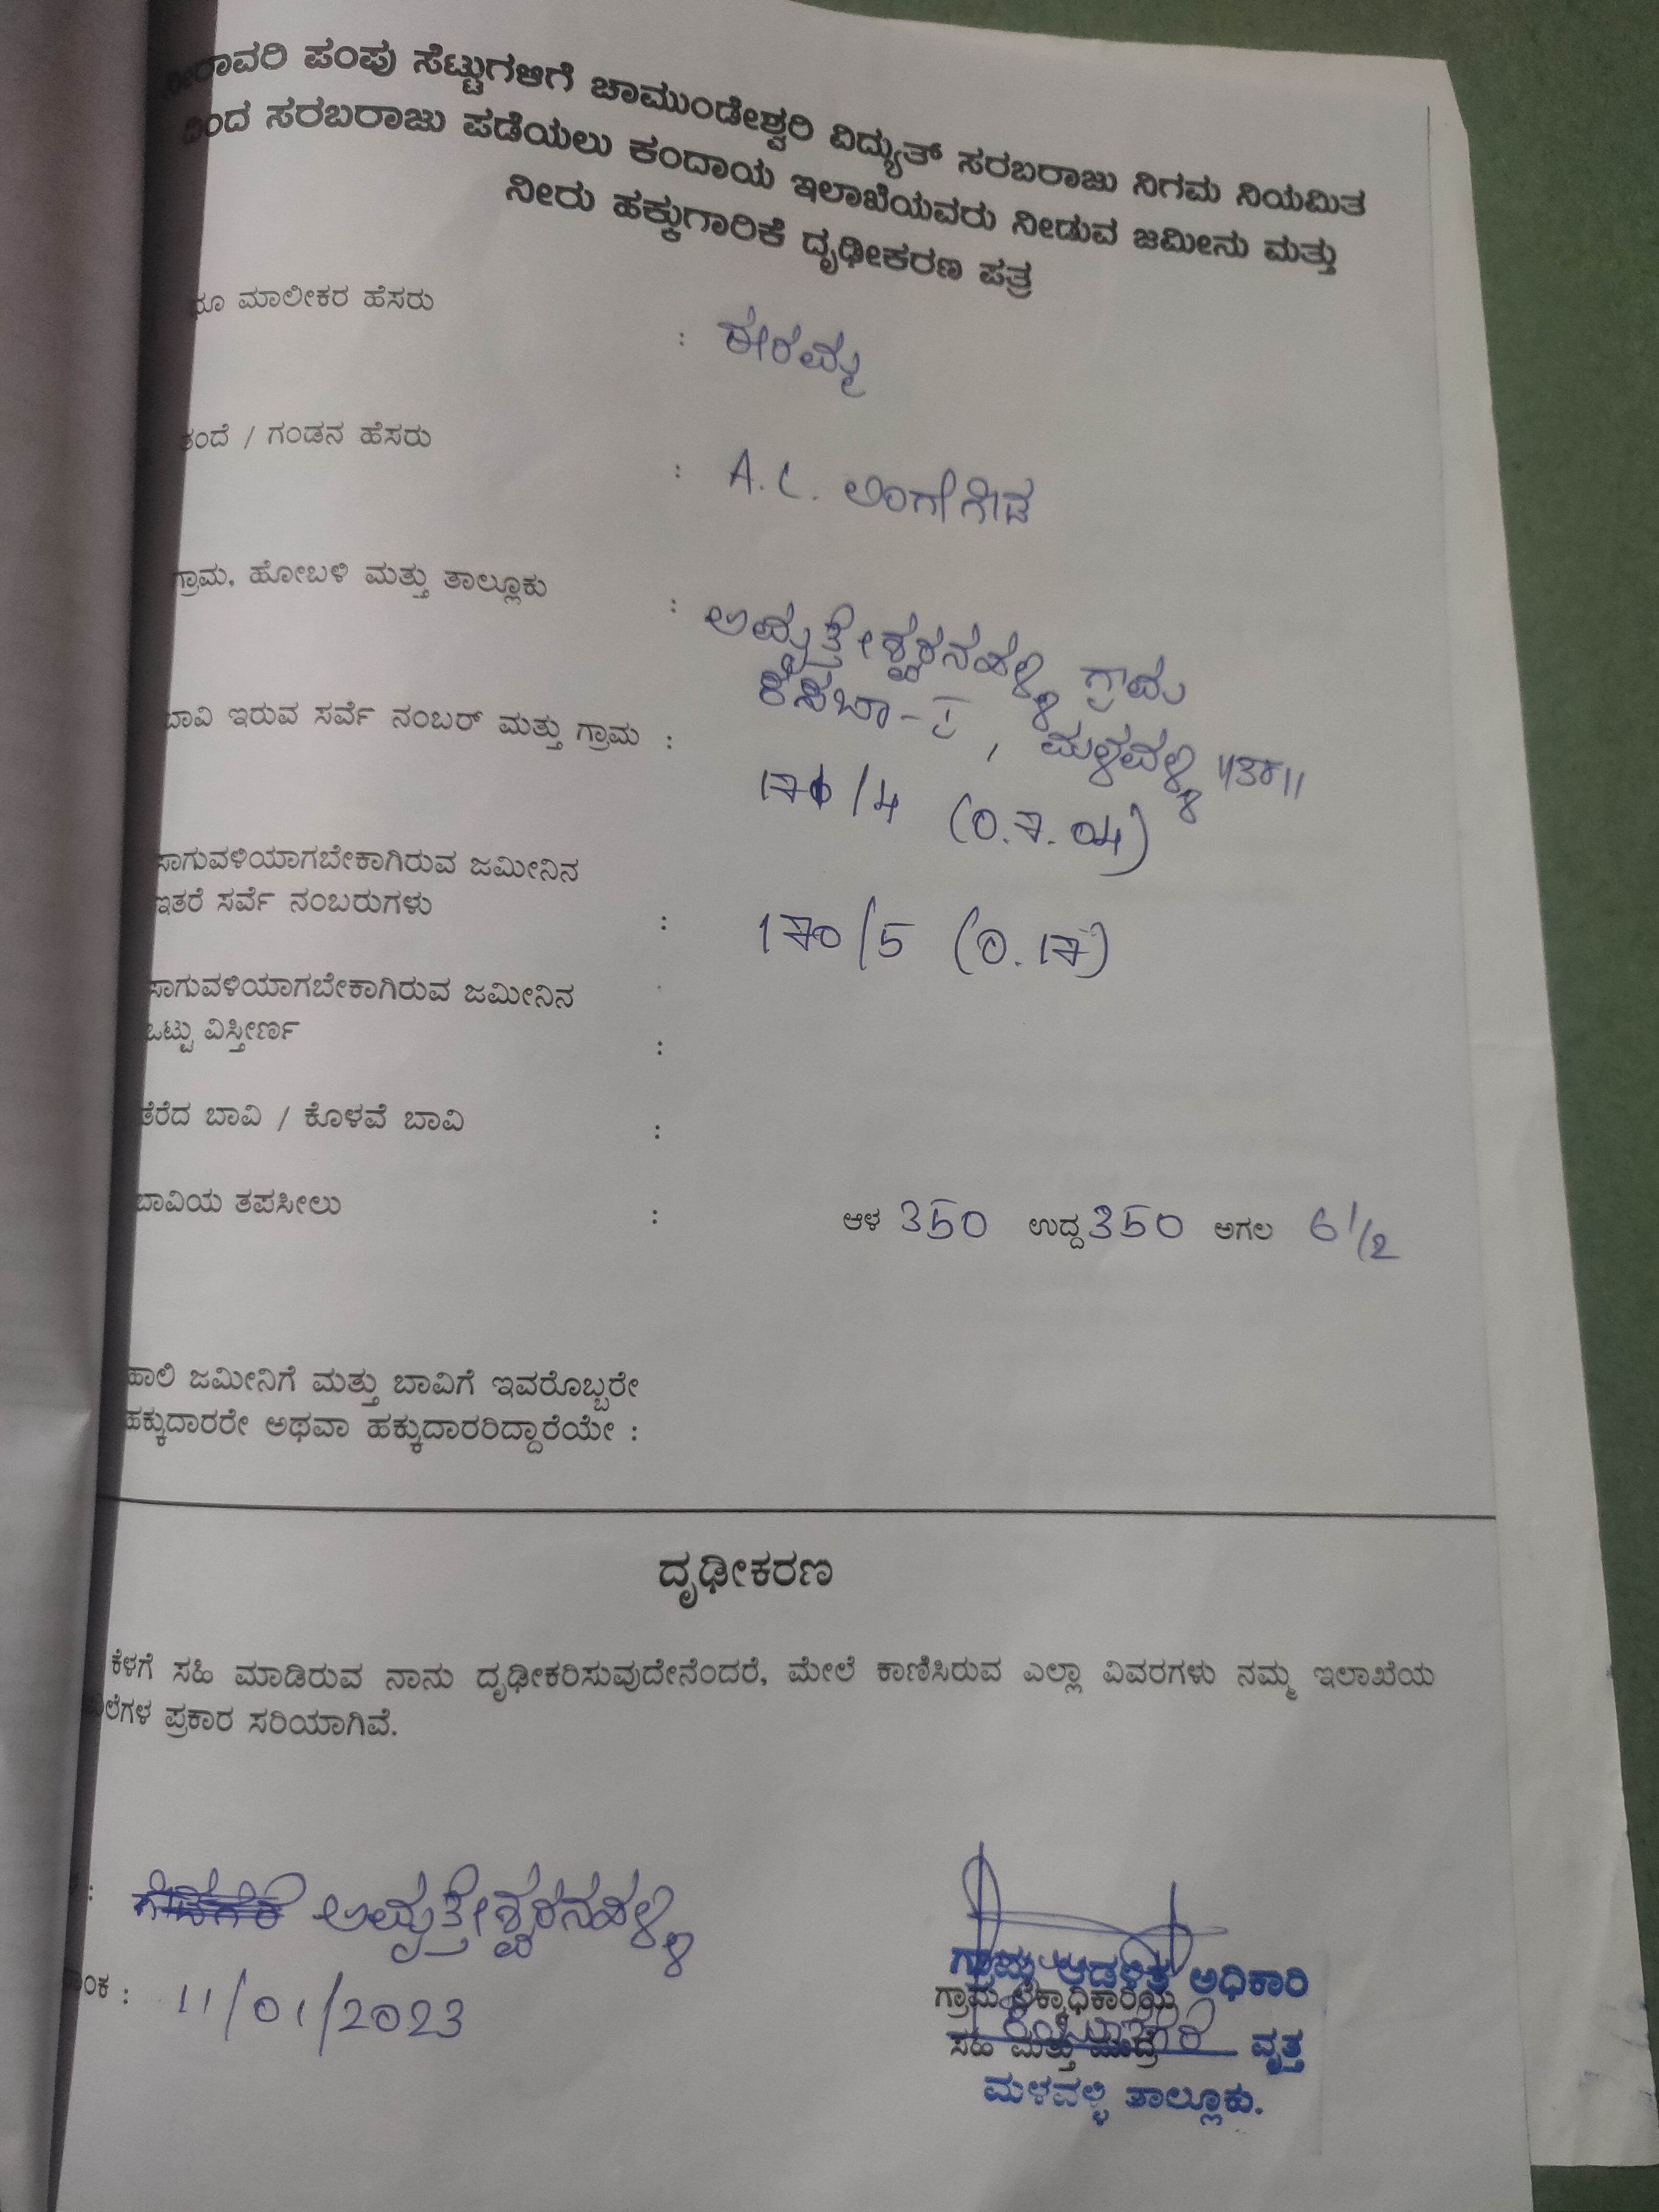 ನೀರಾವರಿ ಪಂಪು ಸೆಟ್ಟುಗಳಿಗೆ ಚಾಮುಂಡೇಶ್ವರಿ ವಿದ್ಯುತ್ ಸರಬರಾಜು ನಿಗಮ ನಿಯಮಿತ
ದಿಂದ ಸರಬರಾಜು ಪಡೆಯಲು ಕಂದಾಯ ಇಲಾಖೆಯವರು ನೀಡುವ ಜಮೀನು ಮತ್ತು
ನೀರು ಹಕ್ಕುಗಾರಿಕೆ ದೃಢೀಕರಣ ಪತ್ರ
ಭೂ ಮಾಲೀಕರ ಹೆಸರು : ಈರಮ್ಮ
ತಂದೆ / ಗಂಡನ ಹೆಸರು : A.L. ಲಿಂಗೇಗೌಡ
ಗ್ರಾಮ, ಹೋಬಳಿ ಮತ್ತು ತಾಲ್ಲೂಕು : ಅಮೃತೇಶ್ವರನಹಳ್ಳಿ ಗ್ರಾಮ
ಕಸಬಾ-I, ಮಳವಳ್ಳಿ
ಬಾವಿ ಇರುವ ಸರ್ವೆ ನಂಬರ್ ಮತ್ತು ಗ್ರಾಮ : /4 (0.7.04)
ಸಾಗುವಳಿಯಾಗಬೇಕಾಗಿರುವ ಜಮೀನಿನ
ಇತರೆ ಸರ್ವೆ ನಂಬರುಗಳು : 170/5 (0.17)
ಸಾಗುವಳಿಯಾಗಬೇಕಾಗಿರುವ ಜಮೀನಿನ
ಒಟ್ಟು ವಿಸ್ತೀರ್ಣ :
ತೆರೆದ ಬಾವಿ / ಕೊಳವೆ ಬಾವಿ :
ಬಾವಿಯ ತಪಸೀಲು : ಆಳ 350 ಉದ್ದ 350 ಅಗಲ 6 1/2
ಹಾಲಿ ಜಮೀನಿಗೆ ಮತ್ತು ಬಾವಿಗೆ ಇವರೊಬ್ಬರೇ
ಹಕ್ಕುದಾರರೇ ಅಥವಾ ಹಕ್ಕುದಾರರಿದ್ದಾರೆಯೇ :
ದೃಢೀಕರಣ
ಕೆಳಗೆ ಸಹಿ ಮಾಡಿರುವ ನಾನು ದೃಢೀಕರಿಸುವುದೇನೆಂದರೆ, ಮೇಲೆ ಕಾಣಿಸಿರುವ ಎಲ್ಲಾ ವಿವರಗಳು ನಮ್ಮ ಇಲಾಖೆಯ
ಪ್ರಕಾರ ಸರಿಯಾಗಿವೆ.
: ಅಮೃತೇಶ್ವರನಹಳ್ಳಿ
: 11/01/2023
ಗ್ರಾಮ ಆಡಳಿತ ಅಧಿಕಾರಿ
ಗ್ರಾಮ ಲೆಕ್ಕಾಧಿಕಾರಿಯ
ಸಹಿ ಮತ್ತು ಮುದ್ರೆ ವೃತ್ತ
ಮಳವಳ್ಳಿ ತಾಲ್ಲೂಕು.